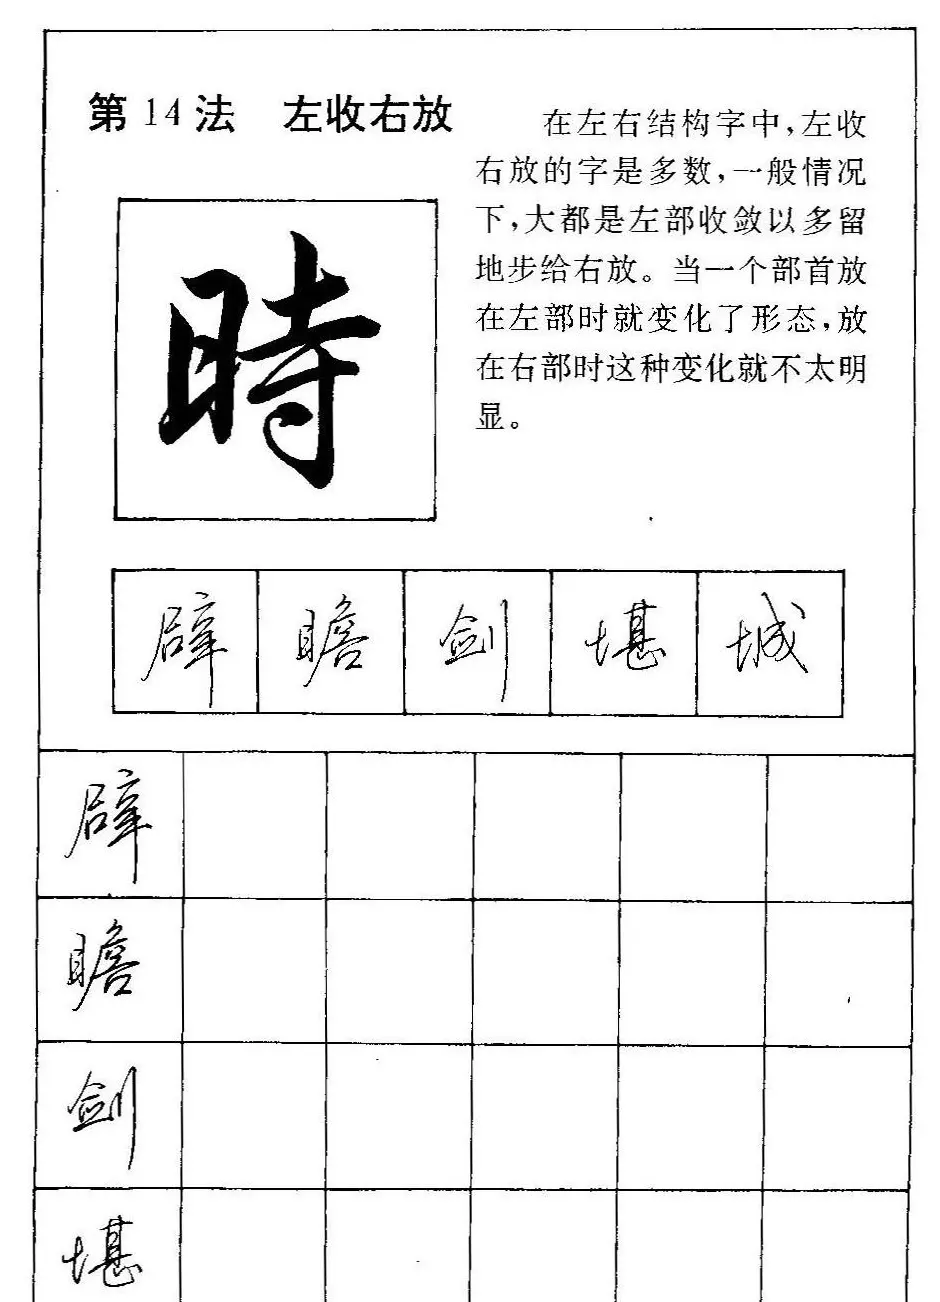 第14法 左收右放
在左右结构字中,左收
右放的字是多数,一般情况
下,大都是左部收敛以多留
地步给右放。当一个部首放
在左部时就变化了形态,放
在右部时这种变化就不太明
显。
時
辟 瞻 剑 堪 城
辟
瞻
剑
堪